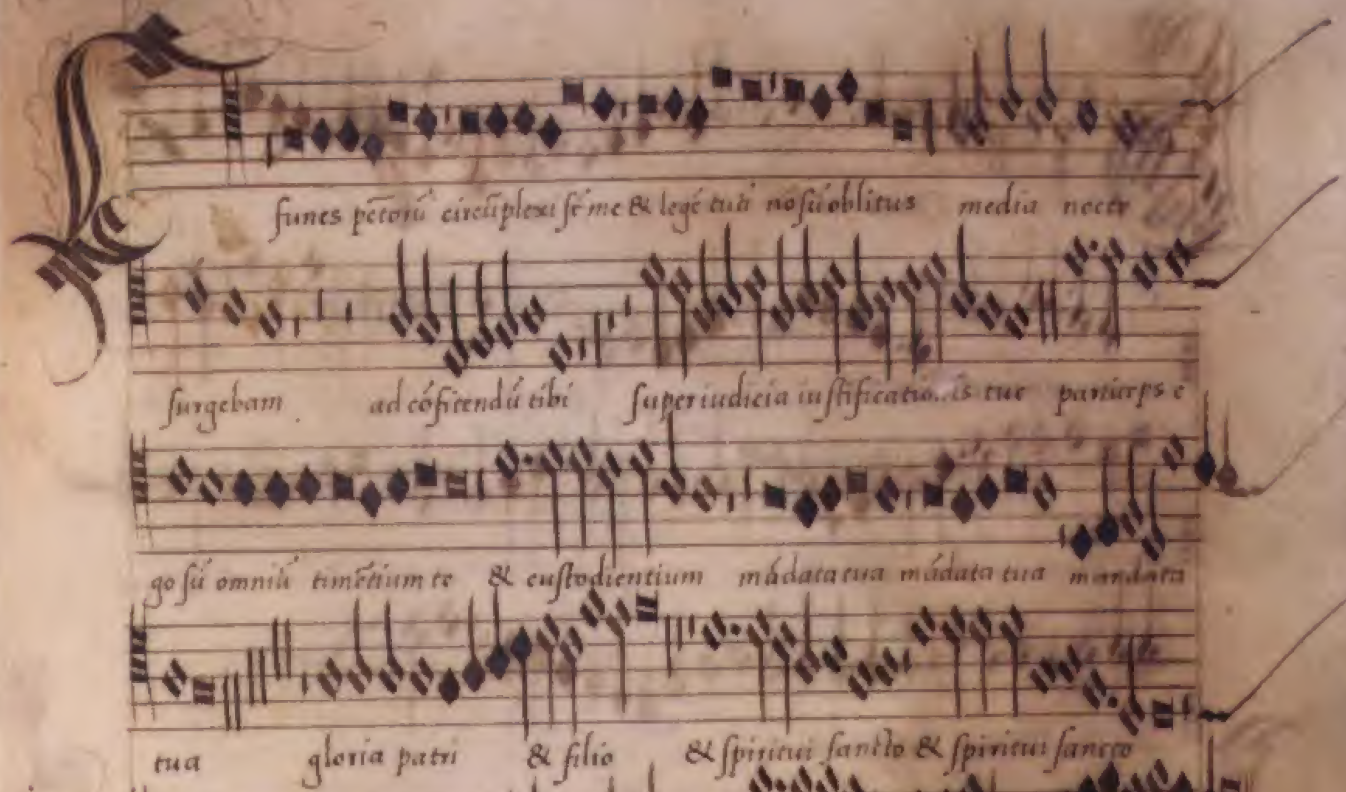 funes pc̄torū circūplexi sr̄ me & legē tuā nō sū oblitus media nocte
surgebam ad cōfitendū tibi super iudicia iustificatio..is tue particeps e
go sū omniū timētium te & custodientium mādata tua mādata tua mandata
tua gloria patri & filio & spiritui sancto & spiritui sancto